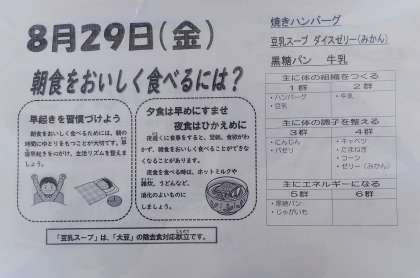 8月29日(金)
朝食をおいしく食べるには?
早起きを習慣づけよう
朝食をおいしく食べるためには、朝の
時間にゆとりをもつことが大切です。早
寝早起きを心がけ、生活リズムを整えま
しょう。
夕食は早めにすませ
夜食はひかえめに
夜遅くに食事をすると、翌朝、食欲がわ
かず、朝食をおいしく食べることができな
くなることがあります。
夜食を食べる時は、ホットミルクや
雑炊、うどんなど、
消化のよいものに
しましょう。
「豆乳スープ」は、「大豆」の除去食対応献立です。
焼きハンバーグ
豆乳スープ ダイスゼリー(みかん)
黒糖パン 牛乳
主に体の組織をつくる
1群 2群
・ハンバーグ ・牛乳
・豆乳
主に体の調子を整える
3群 4群
・にんじん ・キャベツ
・パセリ ・たまねぎ
・コーン
・ゼリー(みかん)
主にエネルギーになる
5群 6群
・黒糖パン
・じゃがいも